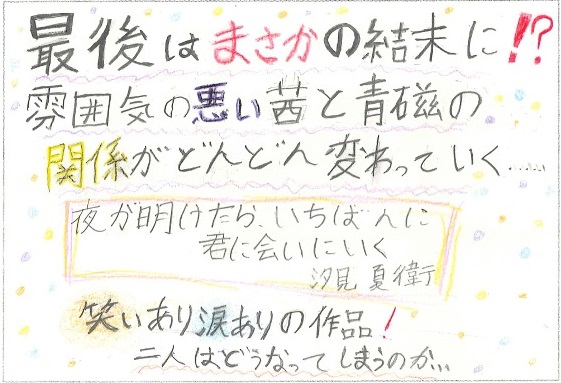 最後はまさかの結末に!?
雰囲気の悪い茜と青磁の
関係がどんどん変わっていく……
夜が明けたら、いちばんに
君に会いにいく
汐見 夏衛
笑いあり涙ありの作品!
二人はどうなってしまうのか…